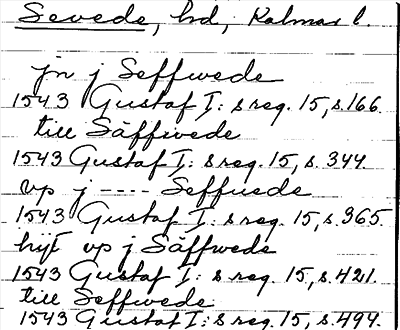 Sevede, hd, Kalmar l.
jn j Seffwede
1543 Gustaf I: s reg. 15, s. 166.
till Säffwede
1543 Gustaf I: s reg. 15, s. 344.
vp j ---- Seffuede
1543 Gustaf I: s reg. 15, s. 365.
hijt vp j Säffwede
1543 Gustaf I: s reg. 15, s. 421.
till Seffwede
1543 Gustaf I: s reg. 15, s. 494.